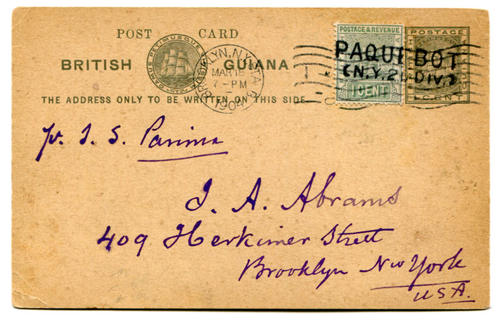 POST CARD
BRITISH GUIANA
THE ADDRESS ONLY TO BE WRITTEN ON THIS SIDE
BROOKLYN, N.Y. STA.
MAR 18
7-PM
1904
POSTAGE & REVENUE
1 CENT
PAQUEBOT
(N.Y. 2D DIV.)
POSTAGE
1 CENT
pr. S. S. Parima
J. A. Abrams
409 Herkimer Street
Brooklyn New York
USA.